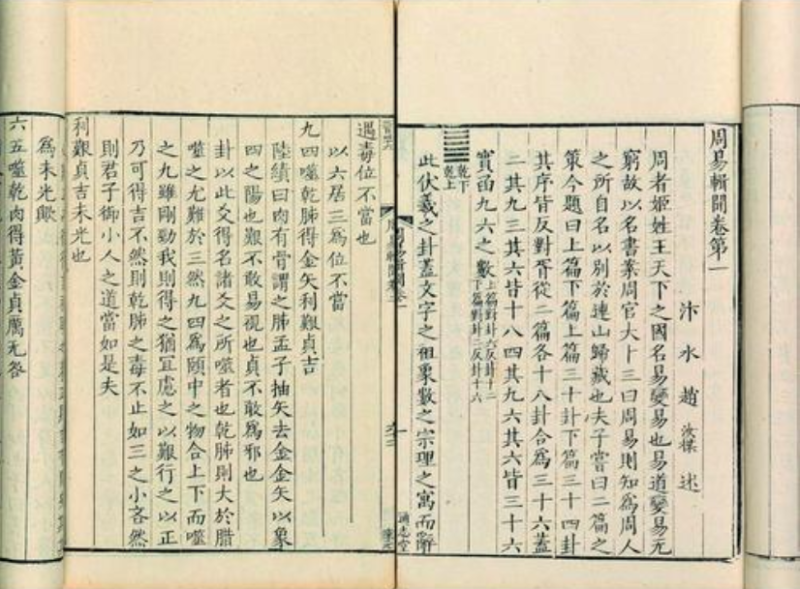 周易輯聞卷第一
汴水趙汝楳述
周者姬姓王天下之國名易變易也易道變易无
窮故以名書案周官大卜三曰周易則知為周人
之所自名以別於連山歸藏也夫子嘗曰二篇之
策今題曰上篇下篇上篇三十卦下篇三十四卦
其序皆反對胥從二篇各十八卦合為三十六蓋
二其九三其六皆十八四其九六其六皆三十六
實函九六之數上篇對卦六反卦十二下篇對卦二反卦十六
乾下乾上
此伏羲之卦蓋文字之祖象數之宗理之寓而辭
通志堂
遇毒位不當也
以六居三為位不當
九四噬乾胏得金矢利艱貞吉
陸績曰肉有骨謂之胏孟子抽矢去金金矢以象
四之陽也艱不敢易視也貞不敢為邪也
卦以此爻得名諸爻之所噬者也乾胏則大於腊
噬之尤難於三然九四為頤中之物合上下而噬
之九雖剛勁我則得之猶宜處之以艱行之以正
乃可得吉不然則乾胏之毒不止如三之小吝然
則君子御小人之道當如是夫
利艱貞吉未光也
為未光歟
六五噬乾肉得黃金貞厲无咎